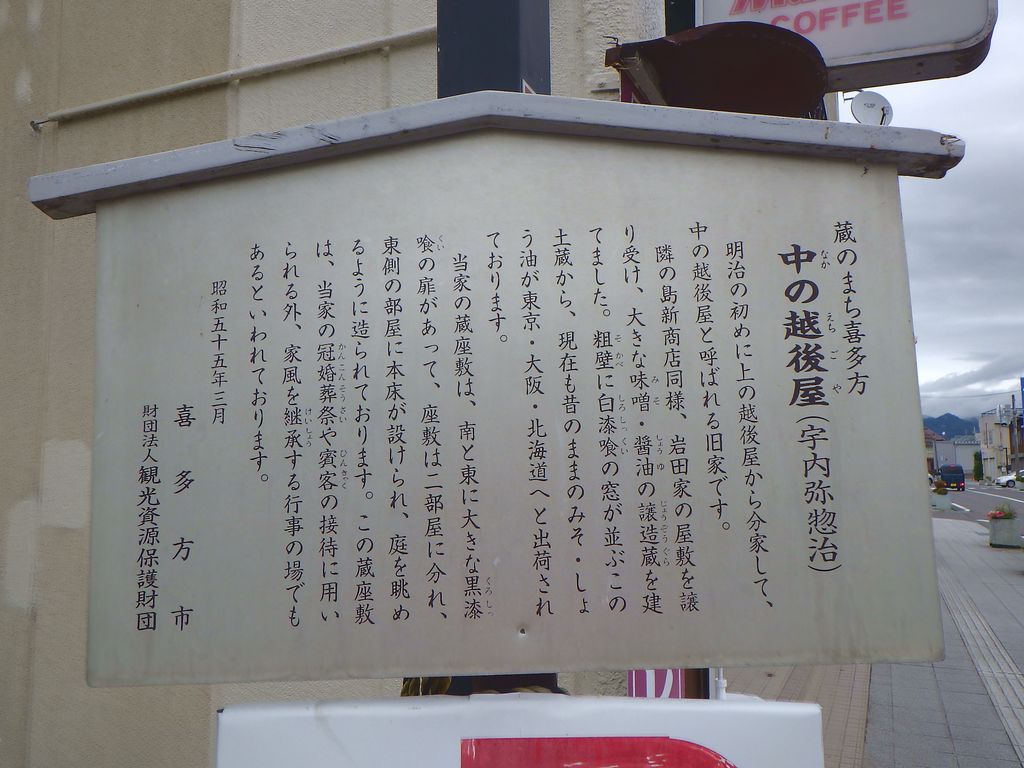 蔵のまち喜多方
中の越後屋(宇内弥惣治)
明治の初めに上の越後屋から分家して、
中の越後屋と呼ばれる旧家です。
隣の島新商店同様、岩田家の屋敷を譲
り受け、大きな味噌・醤油の譲造蔵を建
てました。粗壁に白漆喰の窓が並ぶこの
土蔵から、現在も昔のままのみそ・しょ
う油が東京・大阪・北海道へと出荷され
ております。
当家の蔵座敷は、南と東に大きな黒漆
喰の扉があって、座敷は二部屋に分れ、
東側の部屋に本床が設けられ、庭を眺め
るように造られております。この蔵座敷
は、当家の冠婚葬祭や賓客の接待に用い
られる外、家風を継承する行事の場でも
あるといわれております。
昭和五十五年三月
喜多方市
財団法人観光資源保護財団
COFFEE